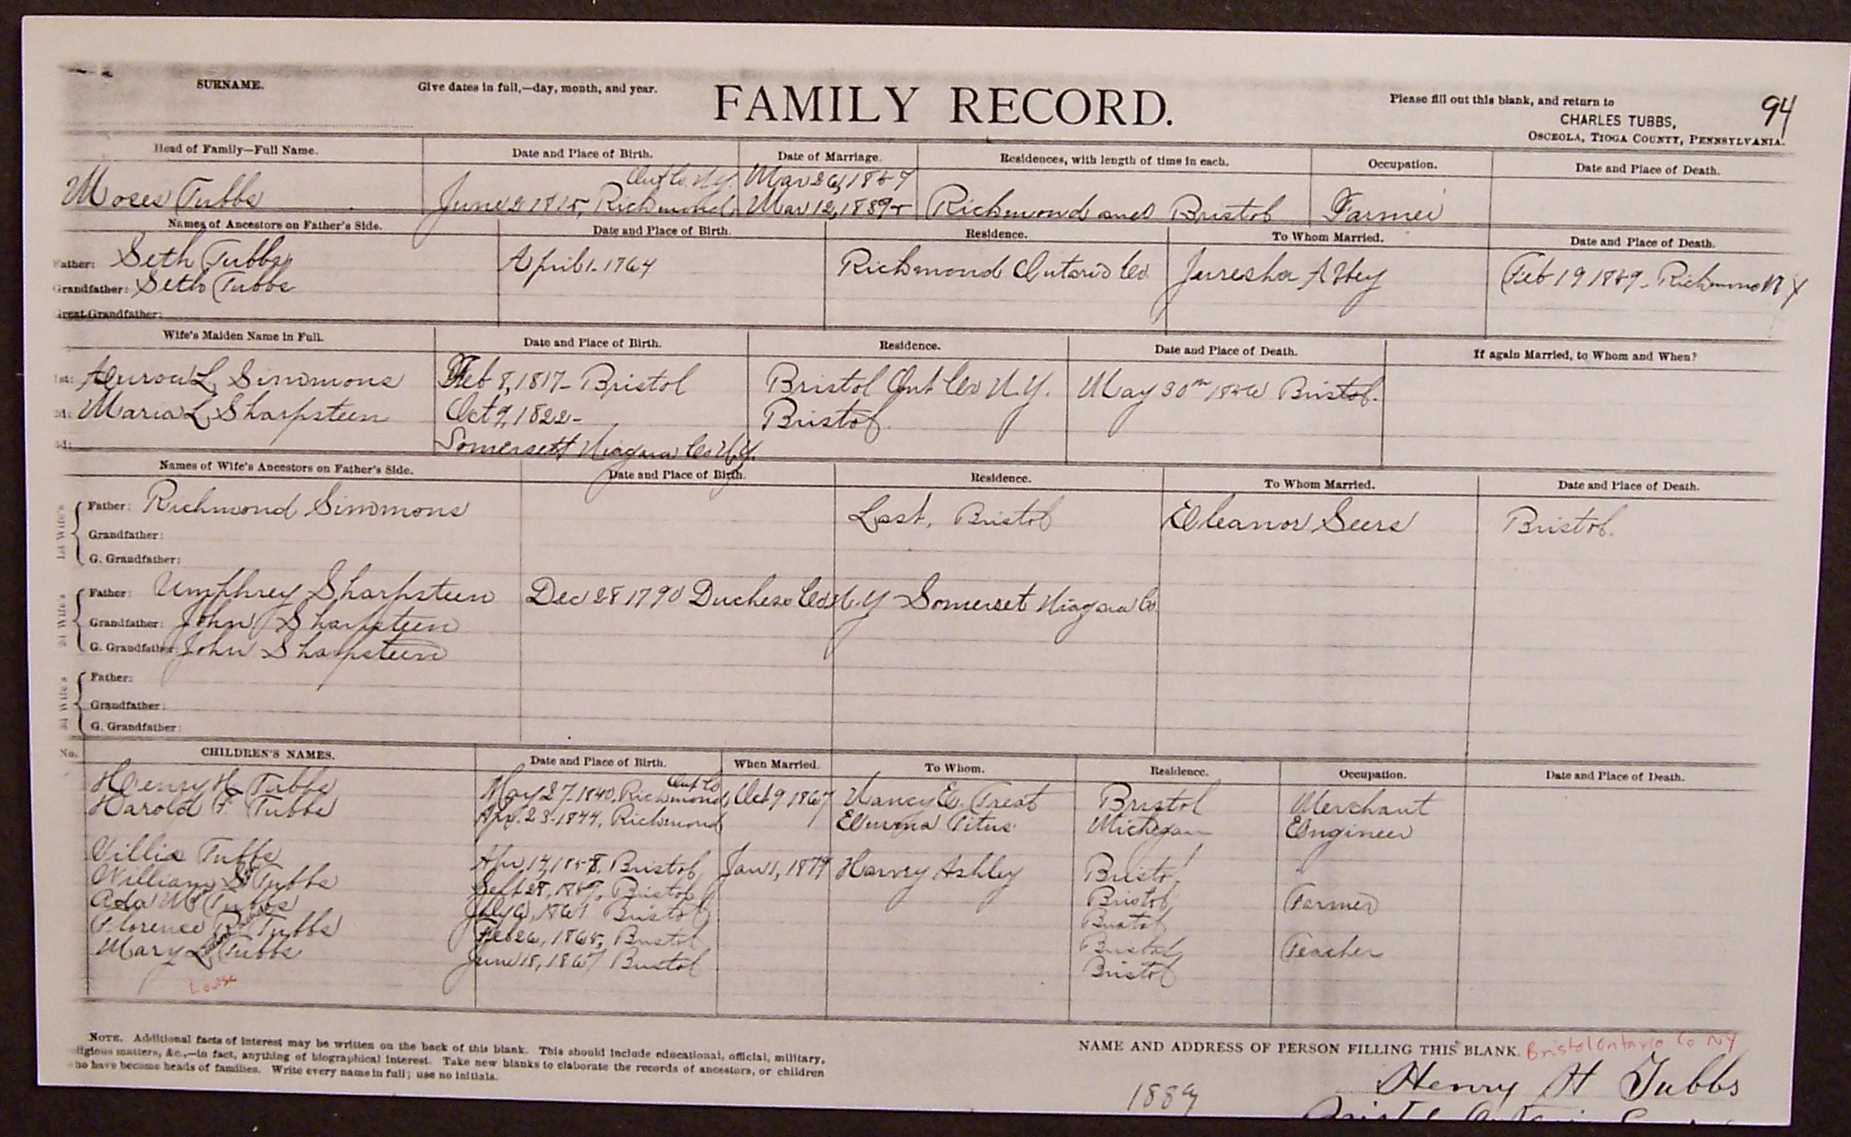 SURNAME.
Give dates in full,—day, month, and year.
FAMILY RECORD.
Please fill out this blank, and return to
CHARLES TUBBS,
OSCEOLA, TIOGA COUNTY, PENNSYLVANIA.
94
Head of Family—Full Name. Date and Place of Birth. Date of Marriage. Residences, with length of time in each. Occupation. Date and Place of Death.
Ont Co N.Y.
Moses Tubbs June 2 1815, Richmond Mar 12, Richmond and Bristol Farmer
Names of Ancestors on Father's Side. Date and Place of Birth. Residence. To Whom Married. Date and Place of Death.
Father: Seth Tubbs April 1. 1764 Richmond Ontario Co Juresha Abbey Feb 19 Richmond N Y
Grandfather: Seth Tubbs
Great Grandfather:
Wife's Maiden Name in Full. Date and Place of Birth. Residence. Date and Place of Death. If again Married, to Whom and When?
1st: L. Simmons Feb 8, 1817- Bristol Bristol Ont Co N.Y. May 30th Bristol.
2d: Maria L Sharpsteen Oct 9, 1822- Bristol
3d: Somersett Niagara Co N.Y.
Names of Wife's Ancestors on Father's Side. Date and Place of Birth. Residence. To Whom Married. Date and Place of Death.
1st Wife's
Father: Richmond Simmons Last, Bristol Eleanor Seers Bristol.
Grandfather:
G. Grandfather:
2d Wife's
Father: Umphrey Sharpsteen Dec 28 1790 Duchess Co N.Y Somerset Niagara Co.
Grandfather: John Sharpsteen
G. Grandfather: John Sharpsteen
3d Wife's
Father:
Grandfather:
G. Grandfather:
No. CHILDREN'S NAMES. Date and Place of Birth. When Married. To Whom. Residence. Occupation. Date and Place of Death.
Ont Co
Henry H Tubbs May 27. 1840. Richmond Oct 9 1867 Nancy E. Treat Bristol Merchant
Harold F. Tubbs Apr. 23. 1844, Richmond Emma Titus Michigan Engineer
Tubbs Apr Bristol Jan 1, 1879 Harvey Ashley Bristol
William S Tubbs Sept 28, Bristol Bristol Farmer
Ada M Tubbs July Bristol Bristol
Florence R Tubbs Feb 26, 1865, Bristol Bristol Teacher
Mary L Tubbs June 18, 1867 Bristol Bristol
Louise
NOTE. Additional facts of interest may be written on the back of this blank. This should include educational, official, military,
ligious matters, &c.,—in fact, anything of biographical interest. Take new blanks to elaborate the records of ancestors, or children
ho have become heads of families. Write every name in full; use no initials.
NAME AND ADDRESS OF PERSON FILLING THIS BLANK. Bristol Ontario Co NY
1889 Henry H Tubbs